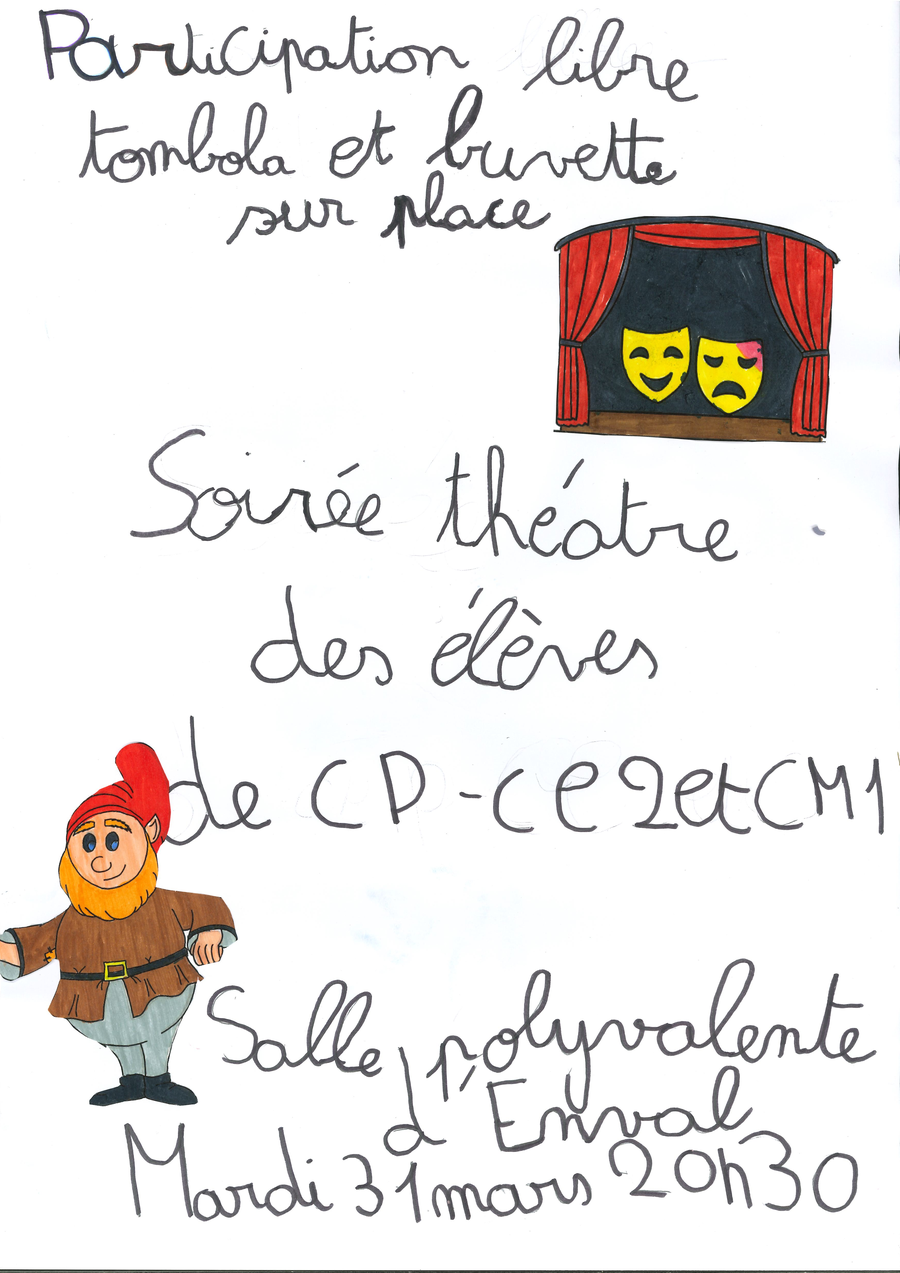 Participation libre
tombola et buvette
sur place
Soirée théatre
des élèves
de CP-CE2etCM1
Salle polyvalente
d'Enval
Mardi 31 mars 20h30